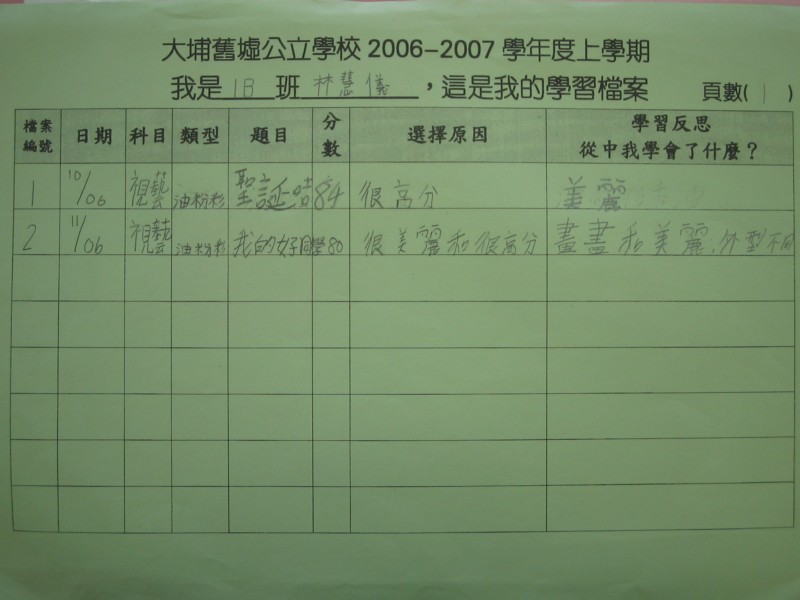 大埔舊墟公立學校 2006-2007 學年度上學期
我是 1B 班 林慧儀 ，這是我的學習檔案 頁數( 1 )
檔案編號 日期 科目 類型 題目 分數 選擇原因 學習反思 從中我學會了什麼？
1 10/06 視藝 油粉彩 聖誕 84 很高分 美麗
2 11/06 視藝 油粉彩 我的好同學 80 很美麗和很高分 畫畫和美麗,外型不同